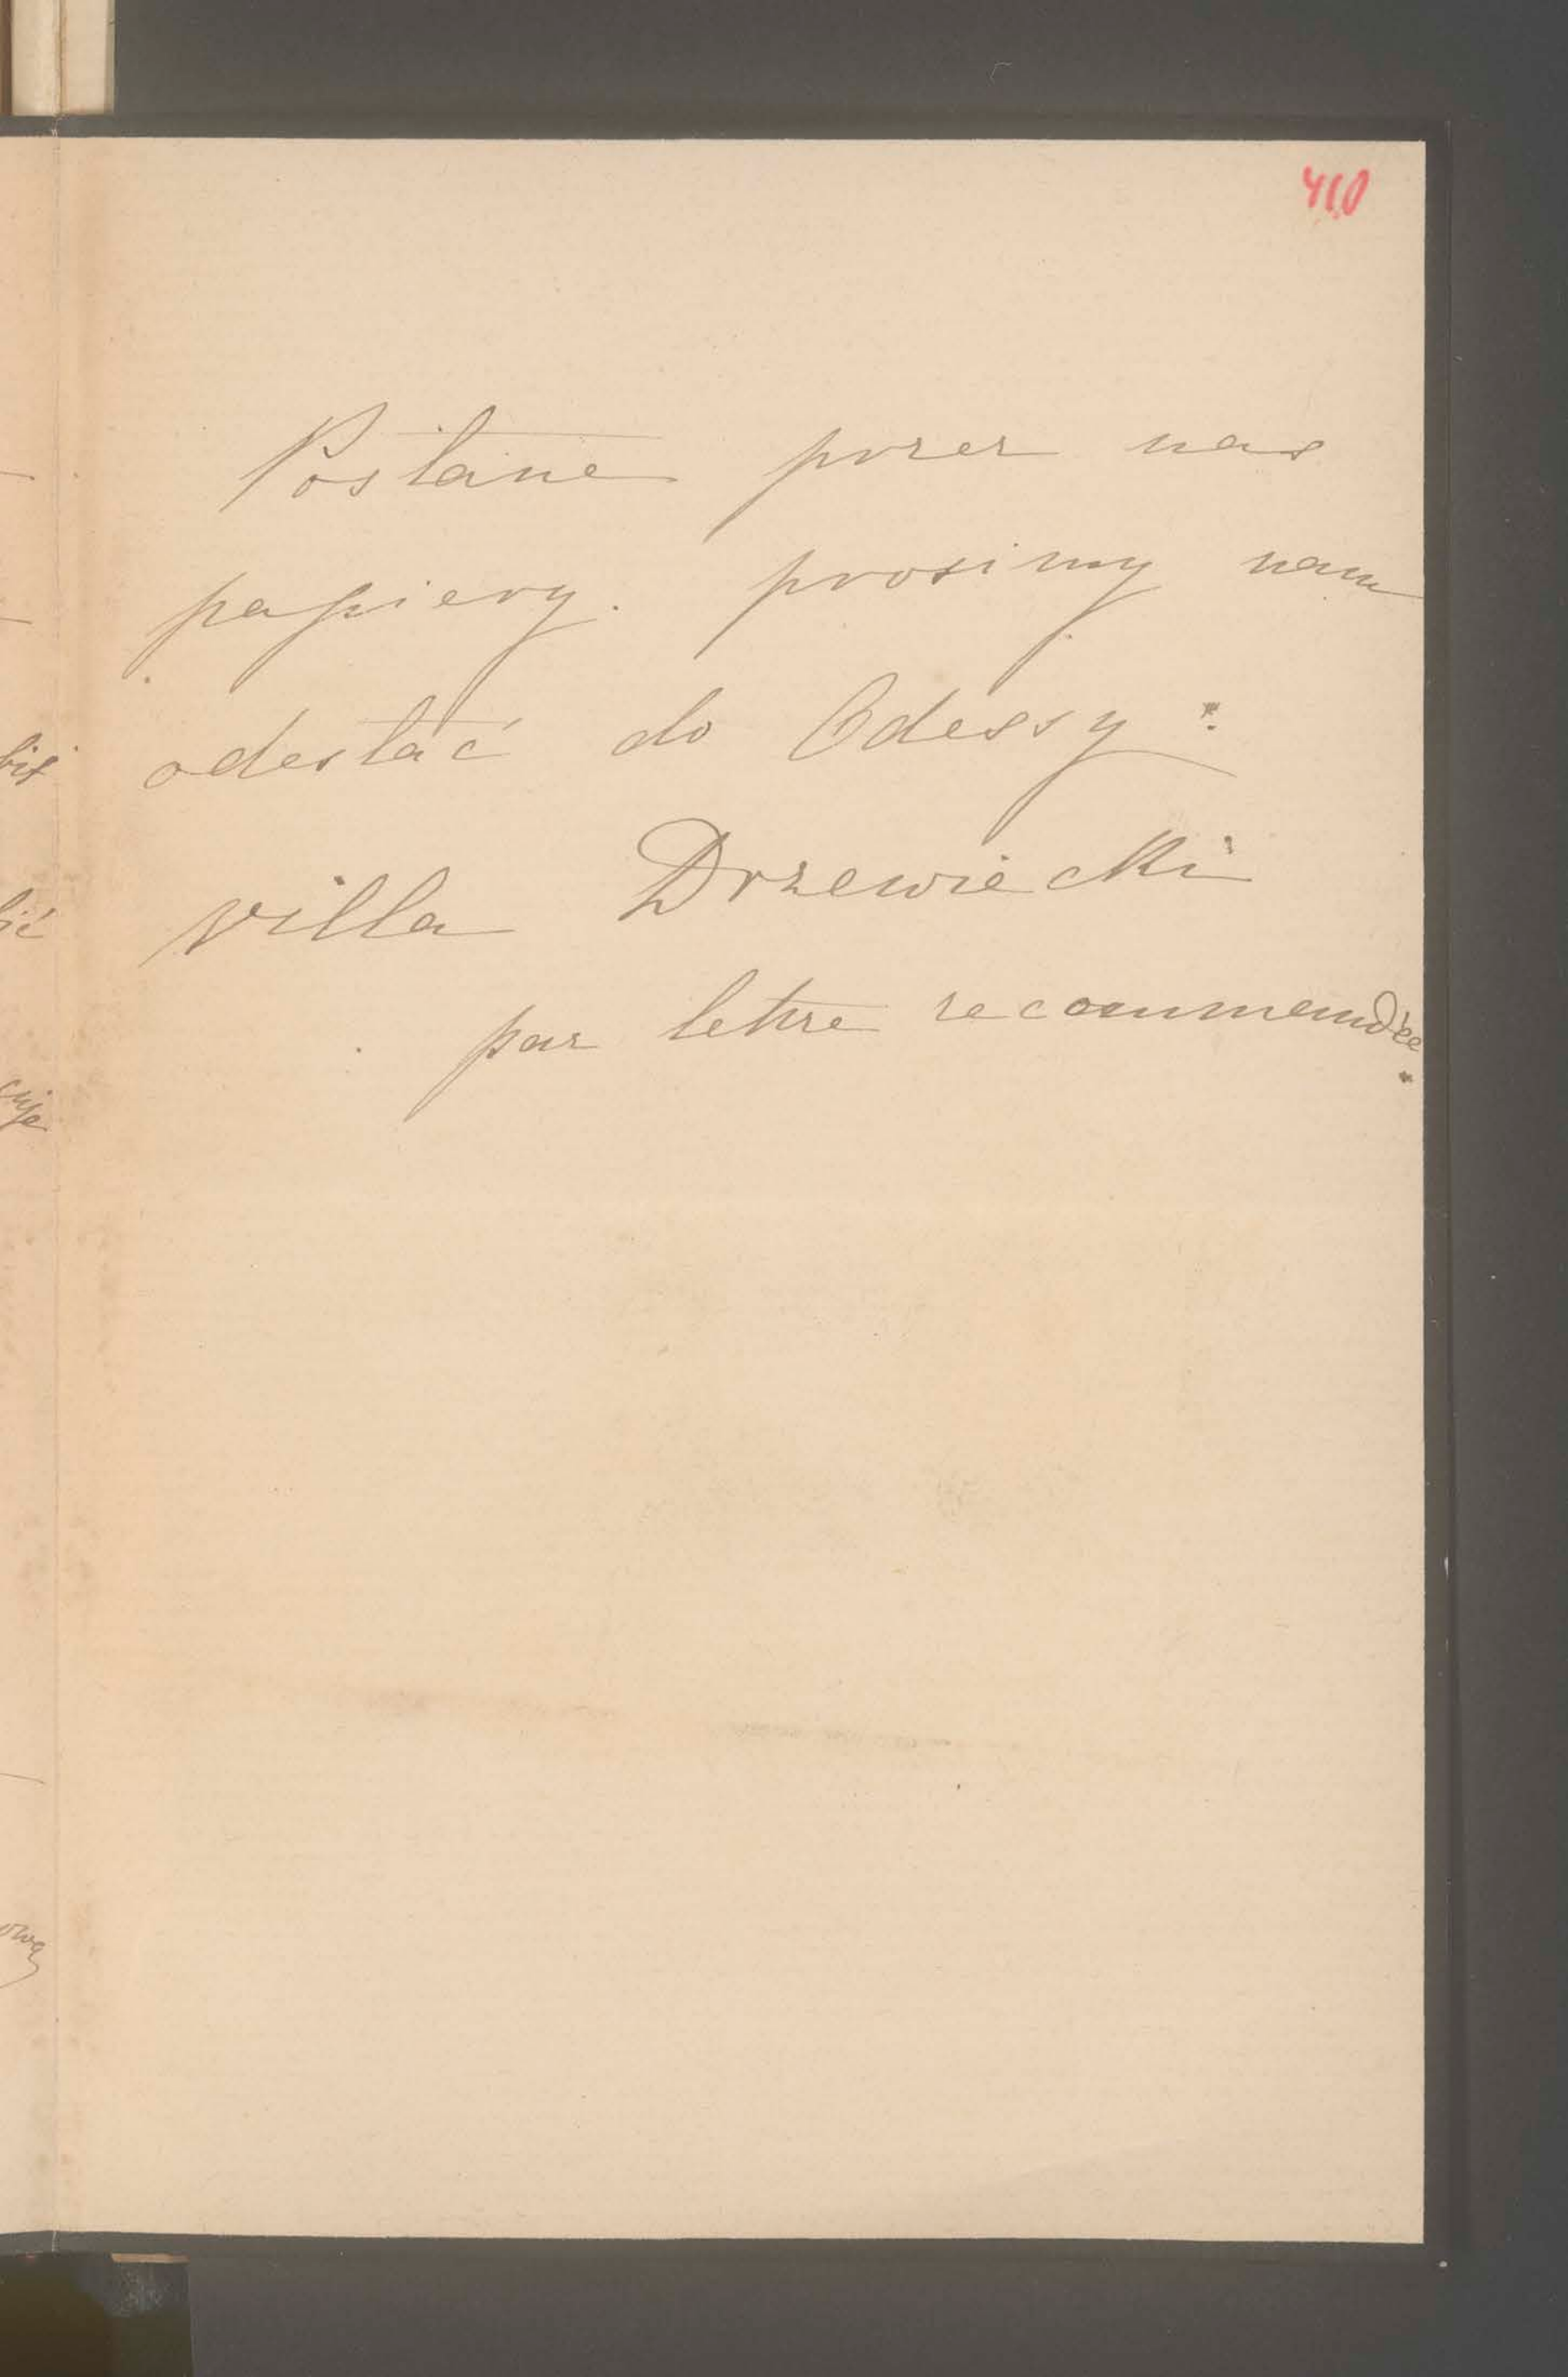 410
Posłane przez nas
papiery. prosimy nam
odesłać do Odessy:
villa Drzewiecki
par lettre recommandée.